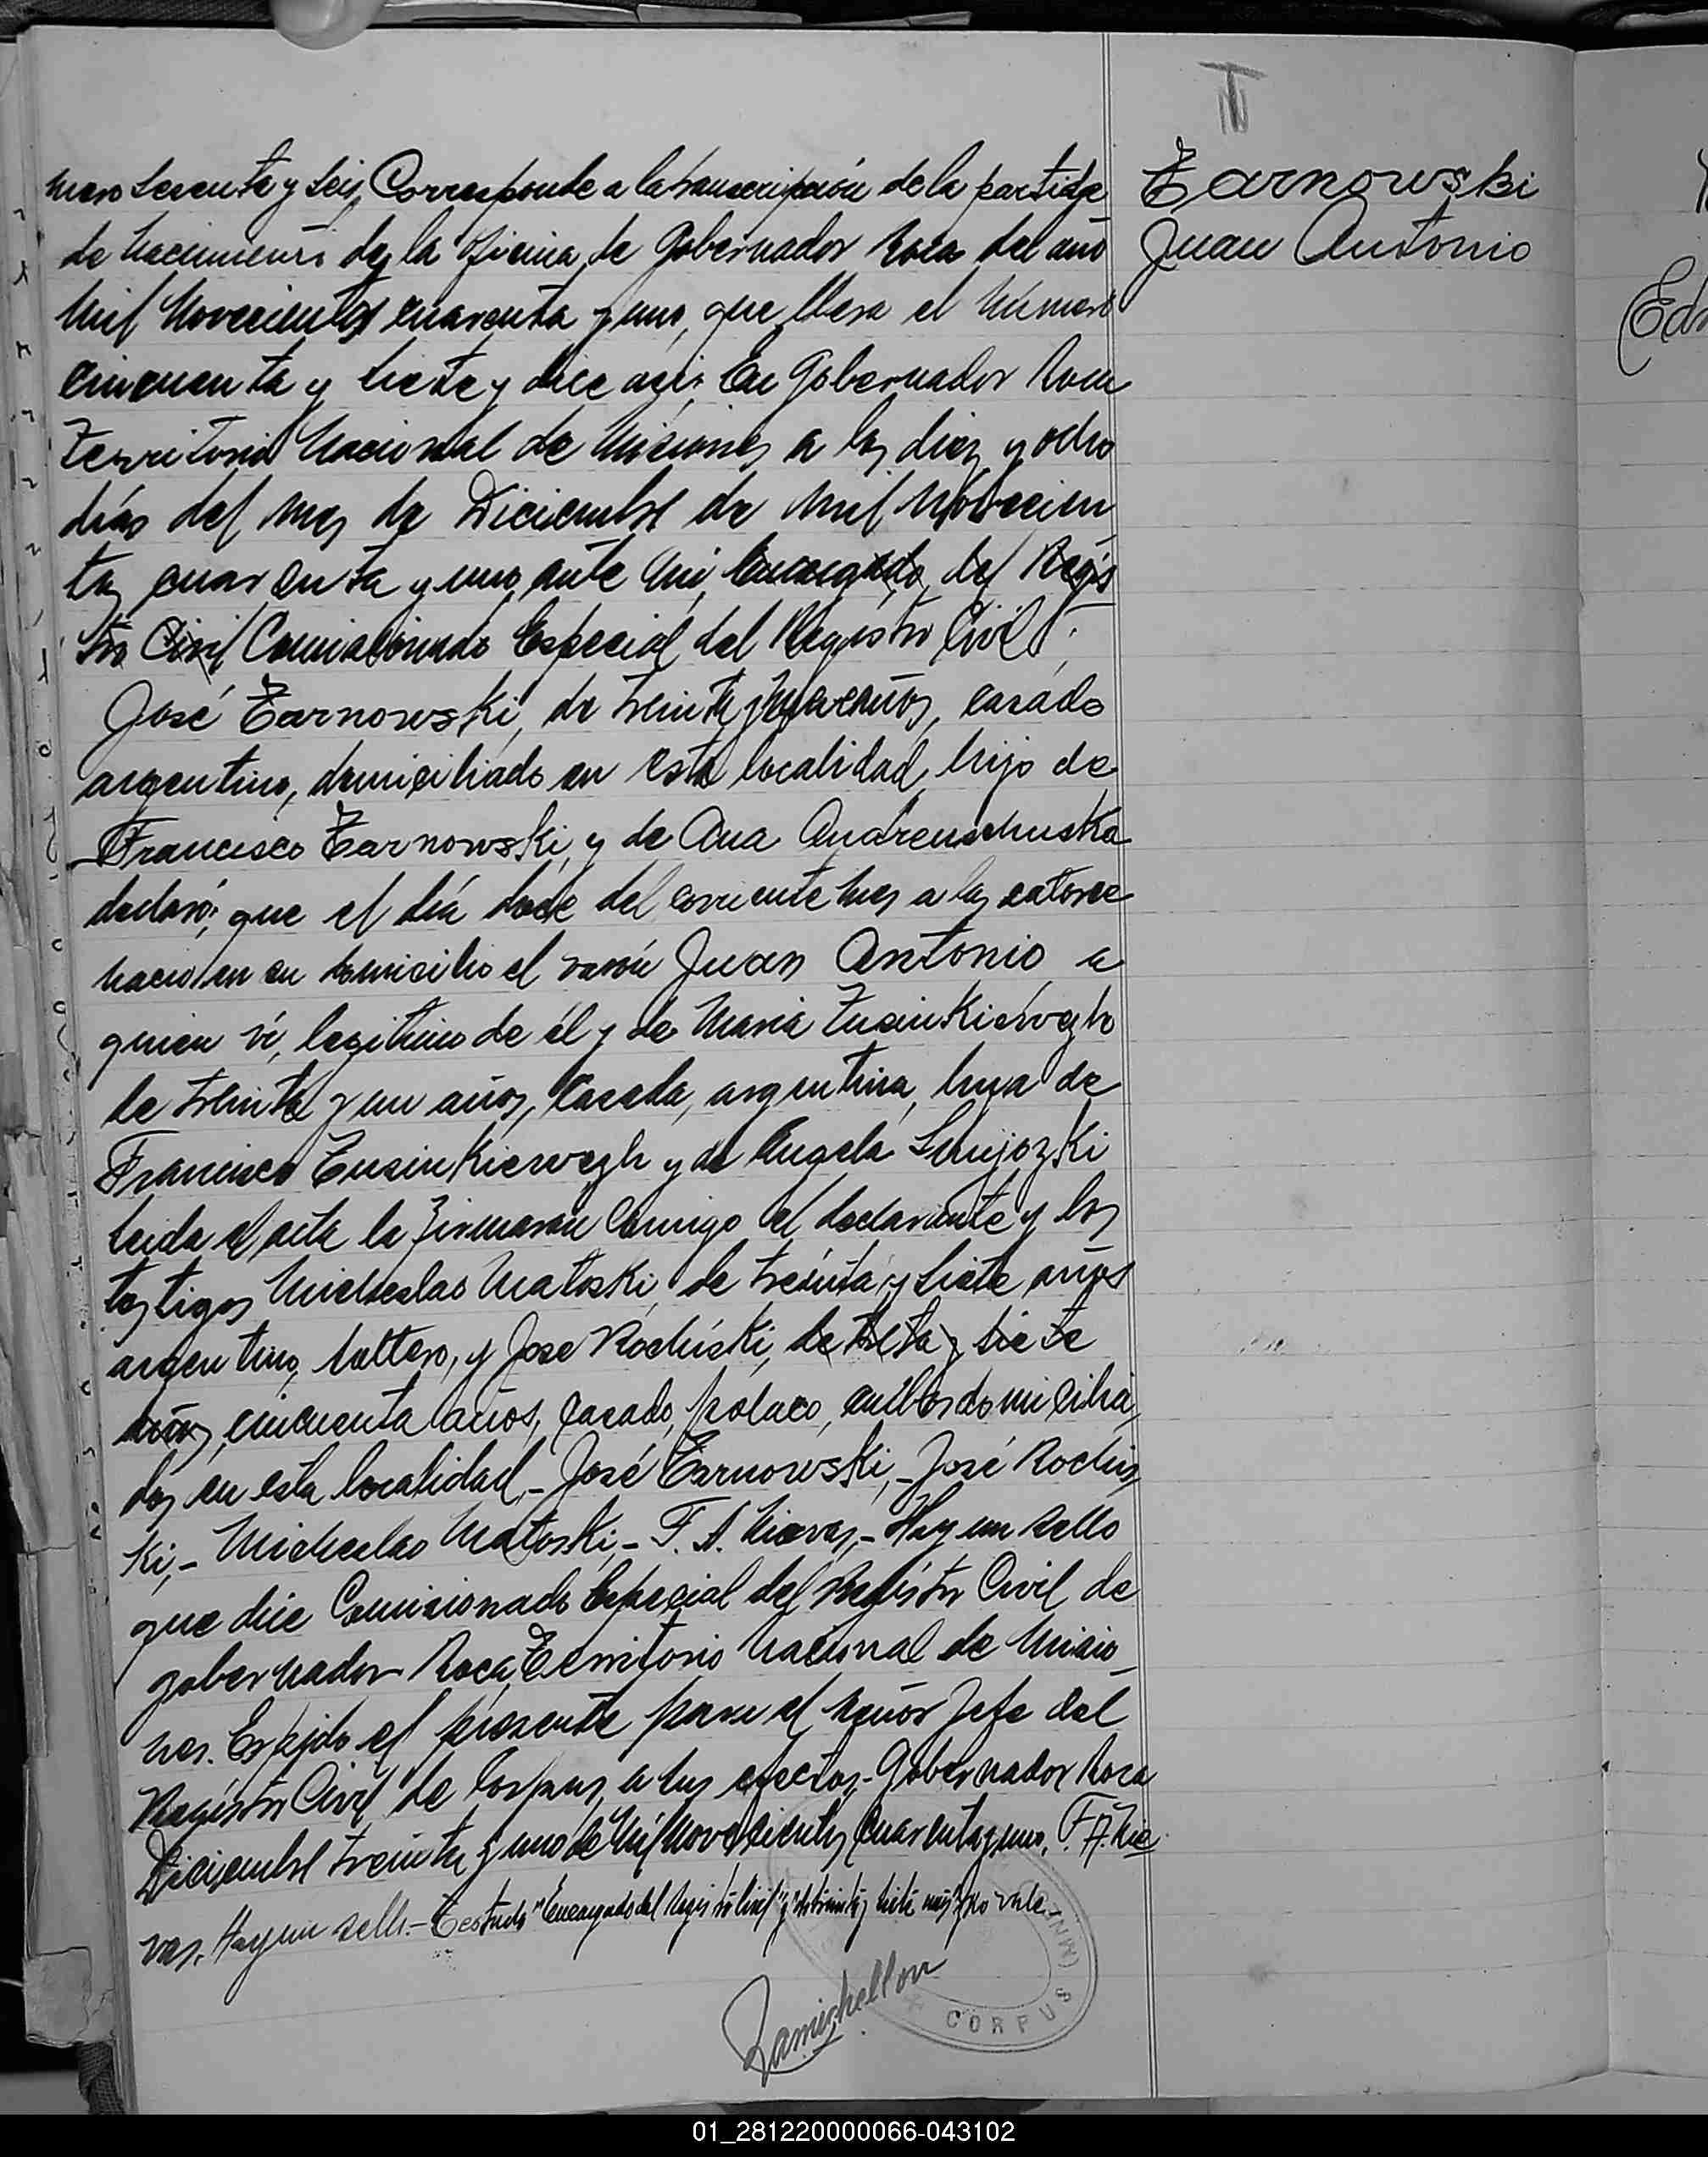 T
N
Tarnowski
Juan Antonio
mero sesenta y seis, Corresponde a la transcripción de la partida
de nacimiento de la oficina de Gobernador Roca del año
mil novecientos cuarenta y uno, que lleva el número
cincuenta y siete y dice así: En Gobernador Roca
Territorio Nacional de Misiones a los diez y ocho
días del mes de Diciembre de mil novecien
tos cuarenta y uno, ante mí, Encargado del Regis
tro Civil Comisionado Especial del Registro Civil
José Tarnowski, de treinta y nueve años, casado
argentino, domiciliado en esta localidad, hijo de
Francisco Tarnowski, y de Ana Andreuschuska
declaró: que el día doce del corriente mes a las catorce
nació en su domicilio el varón Juan Antonio a
quien ví, legítimo de él y de María Zusinkiervegh
de treinta y un años, casada, argentina, hija de
Francisco Zusinkiervegh y de Angela
leida el acta la firmaron conmigo el declarante y los
testigos Micheslao Matoski, de treinta y siete años
argentino, soltero, y Jose Rochiski, de treinta y siete
años, cincuenta años, casado, polaco, ambos domicilia
dos en esta localidad.- José Tarnowski,- José Rochis
ki,- Micheslao Matoski,- F. A. Nieves,- Hay un sello
que dice Comisionado Especial del Registro Civil de
gobernador Roca, Territorio Nacional de Misio
nes. Expido el presente para el señor Jefe del
Registro Civil de Corpus, a sus efectos.- Gobernador Roca
Diciembre treinta y uno de mil novecientos cuarenta y uno. F. A. Nie
ves. Hay un sello.- Testado "Encargado del Registro Civil" y "de treinta y siete años" no vale.-
CORPUS
(MNES)
Edu
01_281220000066-043102